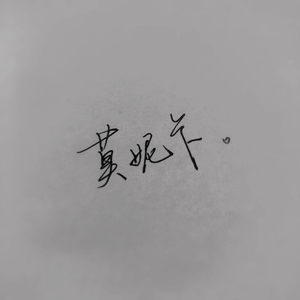 莫妮卡。